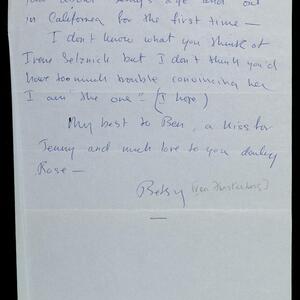 in California for the first time —
I don't know what you think of
Irene Selznick but I don't think you'd
have too much trouble convincing her
I am "the one" (I hope)
My best to Ben, a kiss for
Jenny and much love to you darling
Rose —
Betsy